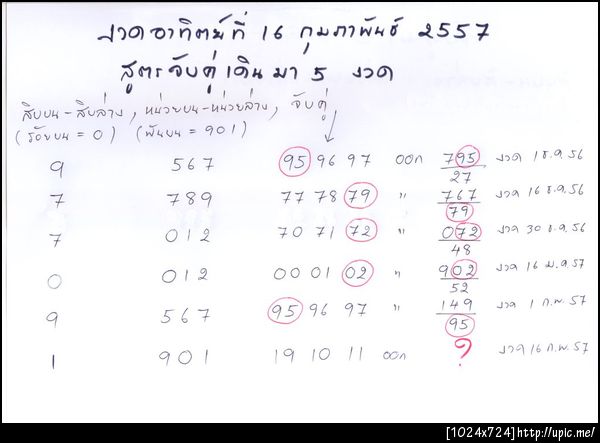 งวดอาทิตย์ที่ 16 กุมภาพันธ์ 2557
สูตรจับคู่เดินมา 5 งวด
สิบบน-สิบล่าง, หน่วยบน-หน่วยล่าง, จับคู่
(ร้อยบน = 0) (พันบน = 901)
9 567 95 96 97 ออก 795 งวด 1 ธ.ค. 56
27
7 789 77 78 79 " 767 งวด 16 ธ.ค. 56
79
7 012 70 71 72 " 072 งวด 30 ธ.ค. 56
48
0 012 00 01 02 " 902 งวด 16 ม.ค. 57
52
9 567 95 96 97 " 149 งวด 1 ก.พ. 57
95
1 901 19 10 11 ออก ? งวด 16 ก.พ. 57
[1024x724]http://upic.me/